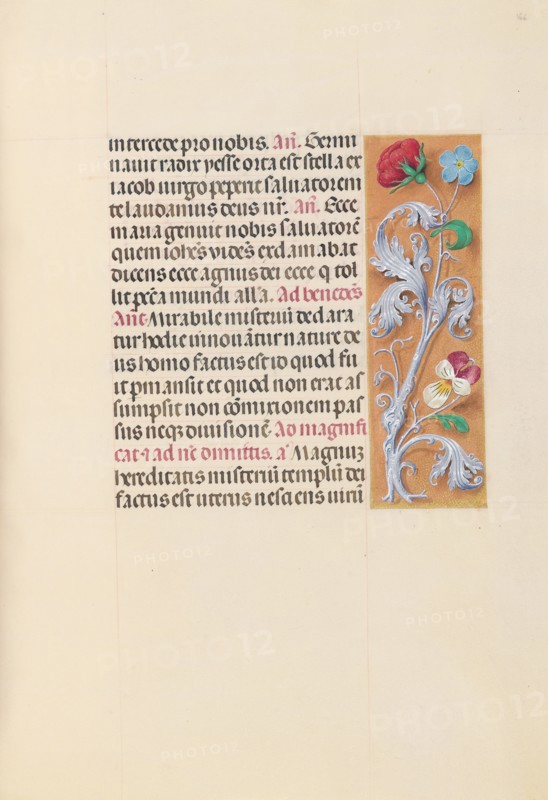 intercede pro nobis. An̄. Germi
nauit radix yesse orta est stella ex
iacob uirgo peperit saluatorem
te laudamus deus nr̄. An̄. Ecce
maria genuit nobis saluatorē
quem iohēs vidēs exclamabat
dicens ecce agnus dei ecce q tol
lit pc̄ca mundi all'a. Ad benedc̄s
Anē. Mirabile misteriū declara
tur hodie innouātur nature de
us homo factus est id quod fu
it pmansit et quod non erat as
sumpsit non cōmixionem pas
sus neqz diuisionē. Ad magnifi
cat ⁊ ad nc̄ dimittis. a' Magnuz
hereditatis misteriū templū dei
factus est uterus nesciens uirū
PHOTO12